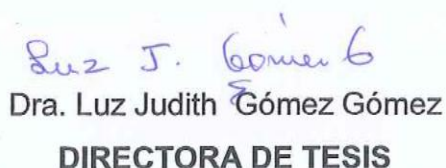 Luz J. Gómez G
Dra. Luz Judith Gómez Gómez
DIRECTORA DE TESIS